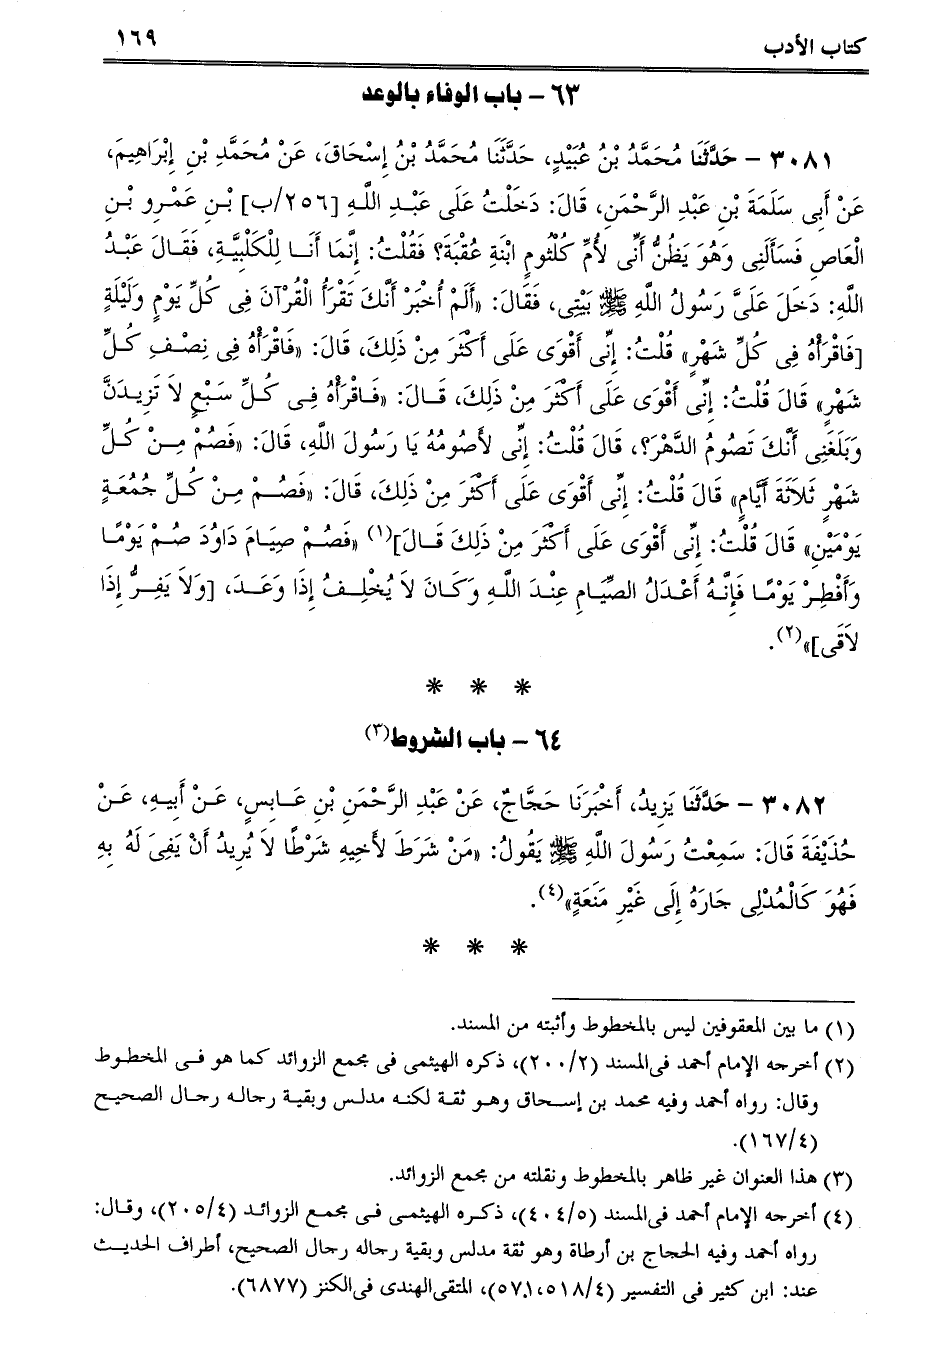 كتاب الأدب ١٦٩
٦٣ - باب الوفاء بالوعد
٣٠٨١ - حَدَّثَنَا مُحَمَّدُ بْنُ عُبَيْدٍ، حَدَّثَنَا مُحَمَّدُ بْنُ إِسْحَاقَ، عَنْ مُحَمَّدِ بْنِ إِبْرَاهِيمَ،
عَنْ أَبِى سَلَمَةَ بْنِ عَبْدِ الرَّحْمَنِ، قَالَ: دَخَلْتُ عَلَى عَبْدِ اللَّهِ [٢٥٦/ب] بْنِ عَمْرِو بْنِ
الْعَاصِ فَسَأَلَنِى وَهُوَ يَظُنُّ أَنِّى لأُمِّ كُلْثُومٍ ابْنَةِ عُقْبَةَ؟ فَقُلْتُ: إِنَّمَا أَنَا لِلْكَلْبِيَّةِ، فَقَالَ عَبْدُ
اللَّهِ: دَخَلَ عَلَىَّ رَسُولُ اللَّهِ ﷺ بَيْتِى، فَقَالَ: «أَلَمْ أُخْبَرْ أَنَّكَ تَقْرَأُ الْقُرْآنَ فِى كُلِّ يَوْمٍ وَلَيْلَةٍ
[فَاقْرَأْهُ فِى كُلِّ شَهْرٍ» قُلْتُ: إِنِّى أَقْوَى عَلَى أَكْثَرَ مِنْ ذَلِكَ، قَالَ: «فَاقْرَأْهُ فِى نِصْفِ كُلِّ
شَهْرٍ» قَالَ قُلْتُ: إِنِّى أَقْوَى عَلَى أَكْثَرَ مِنْ ذَلِكَ، قَالَ: «فَاقْرَأْهُ فِى كُلِّ سَبْعٍ لاَ تَزِيدَنَّ
وَبَلَغَنِى أَنَّكَ تَصُومُ الدَّهْرَ؟، قَالَ قُلْتُ: إِنِّى لأَصُومُهُ يَا رَسُولَ اللَّهِ، قَالَ: «فَصُمْ مِنْ كُلِّ
شَهْرٍ ثَلاَثَةَ أَيَّامٍ» قَالَ قُلْتُ: إِنِّى أَقْوَى عَلَى أَكْثَرَ مِنْ ذَلِكَ، قَالَ: «فَصُمْ مِنْ كُلِّ جُمُعَةٍ
يَوْمَيْنِ» قَالَ قُلْتُ: إِنِّى أَقْوَى عَلَى أَكْثَرَ مِنْ ذَلِكَ قَالَ](١) «فَصُمْ صِيَامَ دَاوُدَ صُمْ يَوْمًا
وَأَفْطِرْ يَوْمًا فَإِنَّهُ أَعْدَلُ الصِّيَامِ عِنْدَ اللَّهِ وَكَانَ لاَ يُخْلِفُ إِذَا وَعَدَ، [وَلاَ يَفِرُّ إِذَا
لاَقَى]»(٢).
* * *
٦٤ - باب الشروط(٣)
٣٠٨٢ - حَدَّثَنَا يَزِيدُ، أَخْبَرَنَا حَجَّاجٌ، عَنْ عَبْدِ الرَّحْمَنِ بْنِ عَابِسٍ، عَنْ أَبِيهِ، عَنْ
حُذَيْفَةَ قَالَ: سَمِعْتُ رَسُولَ اللَّهِ ﷺ يَقُولُ: «مَنْ شَرَطَ لأَخِيهِ شَرْطًا لاَ يُرِيدُ أَنْ يَفِىَ لَهُ بِهِ
فَهُوَ كَالْمُدْلِى جَارَهُ إِلَى غَيْرِ مَنَعَةٍ»(٤).
* * *
(١) ما بين المعقوفين ليس بالمخطوط وأثبته من المسند.
(٢) أخرجه الإمام أحمد فى المسند (٢٠٠/٢)، ذكره الهيثمى فى مجمع الزوائد كما هو فى المخطوط
وقال: رواه أحمد وفيه محمد بن إسحاق وهو ثقة لكنه مدلس وبقية رجاله رجال الصحيح
(١٦٧/٤).
(٣) هذا العنوان غير ظاهر بالمخطوط ونقلته من مجمع الزوائد.
(٤) أخرجه الإمام أحمد فى المسند (٤٠٤/٥)، ذكره الهيثمى فى مجمع الزوائد (٢٠٥/٤)، وقال:
رواه أحمد وفيه الحجاج بن أرطاة وهو ثقة مدلس وبقية رجاله رجال الصحيح، أطراف الحديث
عند: ابن كثير فى التفسير (٥١٨/٤، ٥٧١)، المتقى الهندى فى الكنز (٦٨٧٧).